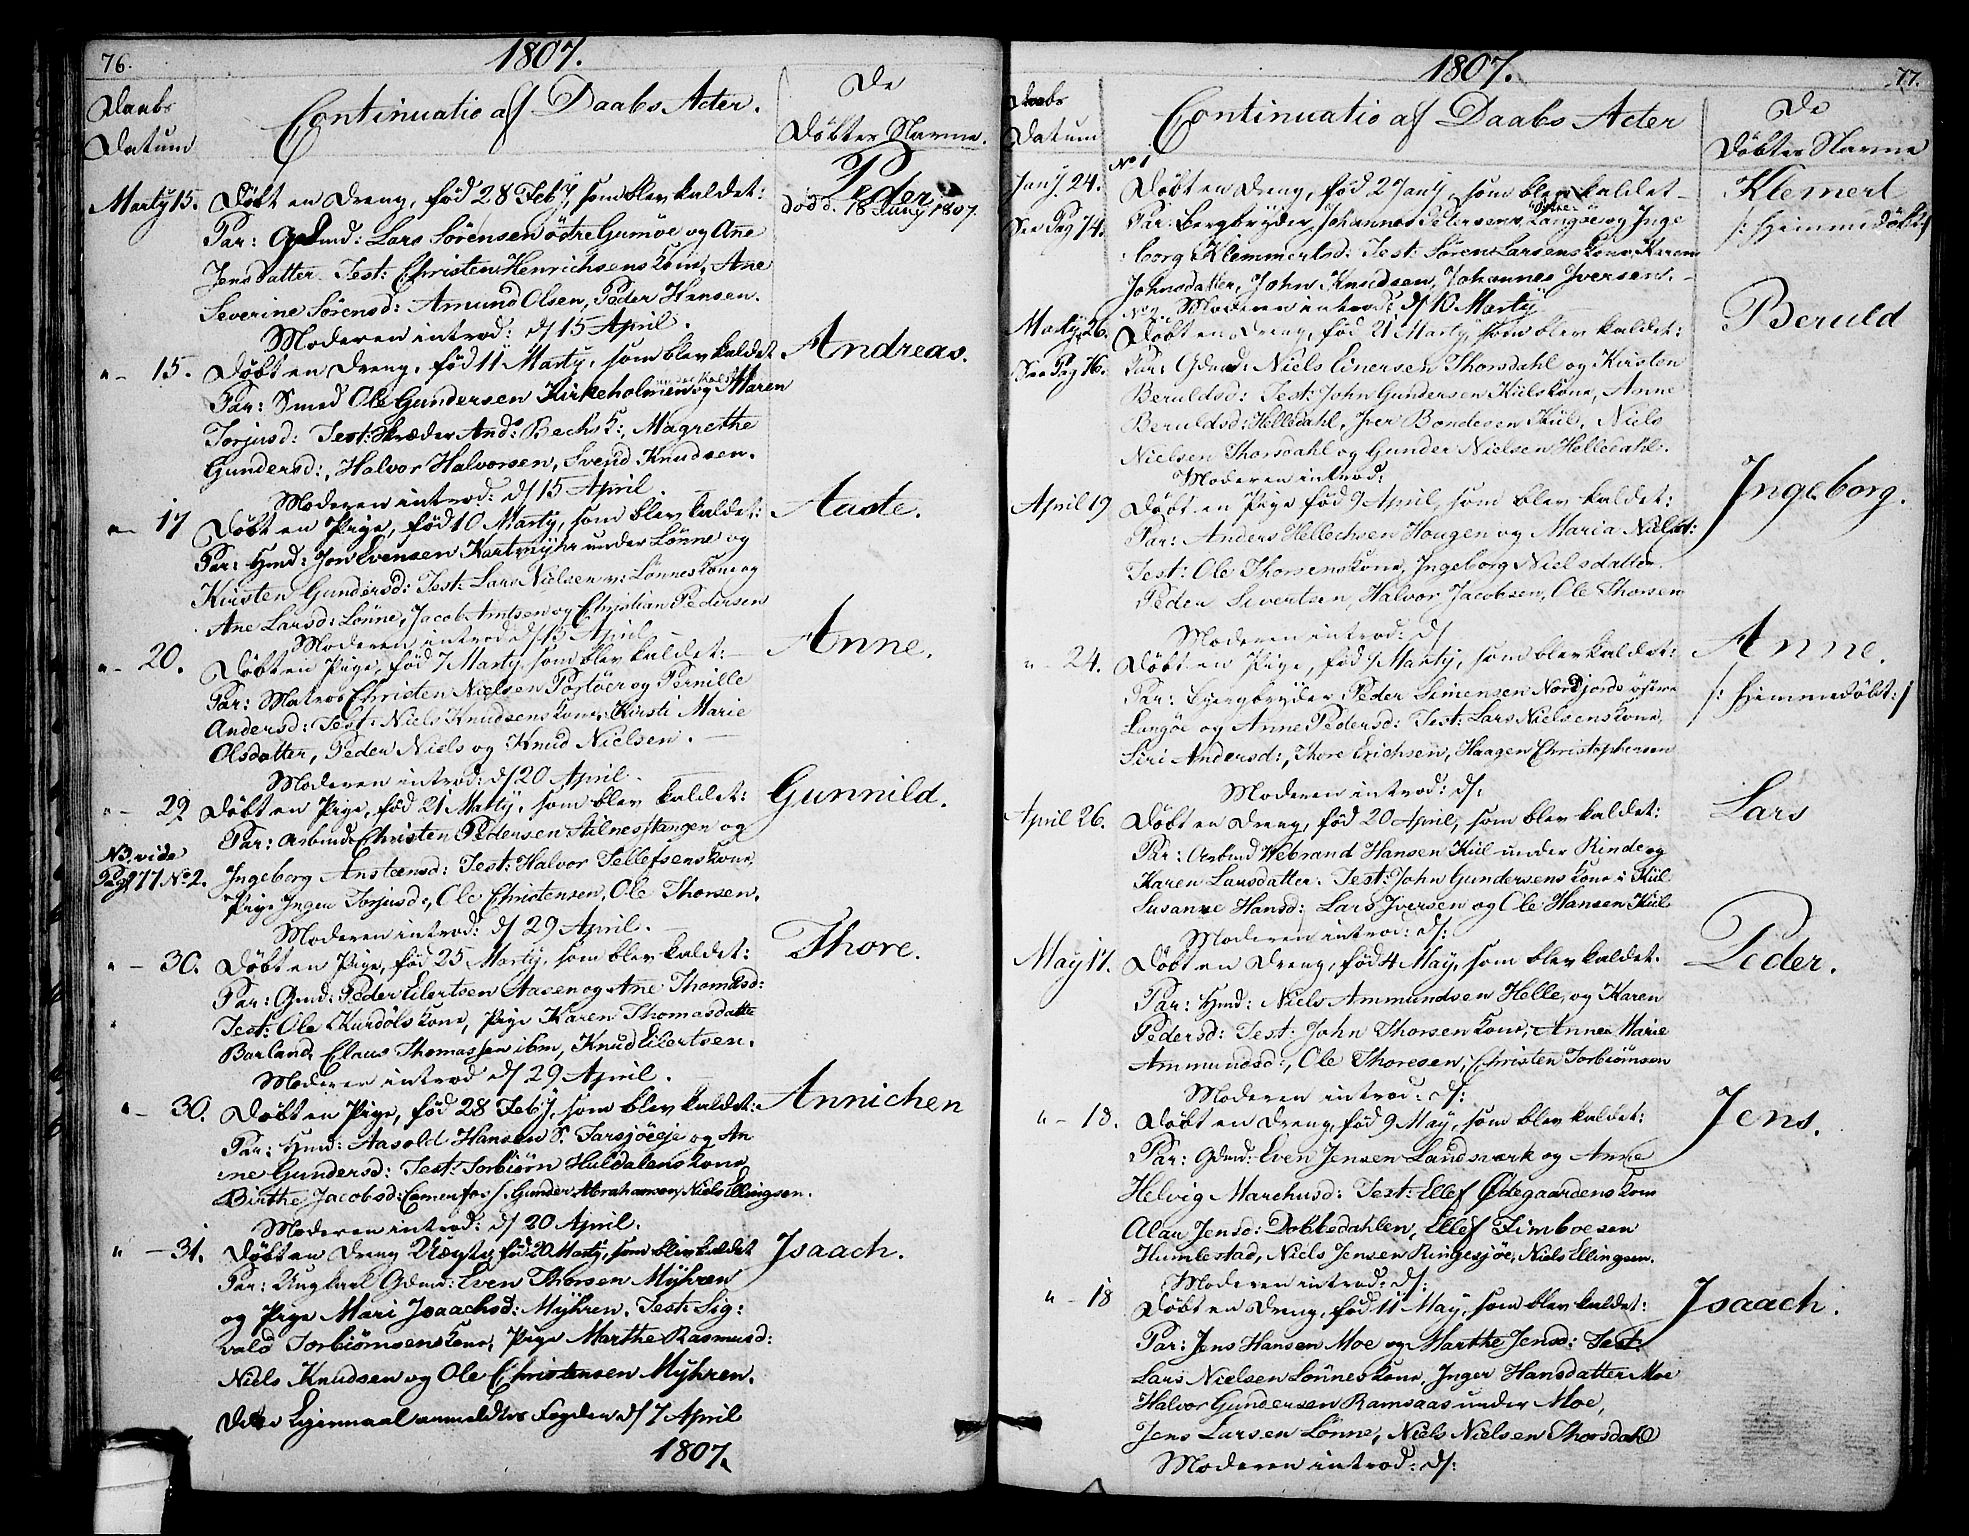 76.
1807.
Daabs
Datum
Continuatio af Daabs Acter.
De
Döbtes Navne.
Marty 15.
Döbt en Dreng, föd 28 Feb:, som blev kaldet:
Peder
död d. 18 Juny 1807.
Par: Gdmd: Lars Sörensen östre Gumöe og Ane
Jensdatter. Test: Christen Henrichsens kone, Ane
Severine Sörensd: Amund Olsen, Peder Hansen.
Moderen introd: d/ 15 April.
" - 15.
Döbt en Dreng, föd 11 Marty, som blev kaldet
Andreas.
Par: Smed Ole Gundersen Kirkeholmen og Maren
Torjusd: Test: Skræder And: Bechs K:, Magrethe
Gundersd:, Halvor Halvorsen, Svend Knudsen.
Moderen introd: d/ 15 April.
" - 17
Döbt en Pige, föd 10 Marty, som blev kaldet:
Aaste.
Par: Hmd: Jon Evensen Kartmyhr under Lönne og
Kirsten Gundersd: Test: Lars Nielsen Lönnes kone og
Ane Larsd: Lönne, Jacob Arntsen og Christian Pedersen
Moderen introd d/ 13 April
" - 20.
Döbt en Pige, föd 7 Marty, som blev kaldet:
Anne.
Par: Matros Christen Nielsen Portöer og Pernille
Andersd: Test: Niels Knudsens kone, Kirsti Marie
Olsdatter, Peder Niels og Knud Nielsen.
Moderen introd: d/ 20 April.
" - 29
Döbt en Pige, föd 21 Marty, som blev kaldet:
Gunnild.
Par: Arbmd: Christen Pedersen Stilnestangen og
NB. vide
Pag: 77 No 2.
Ingeborg Ansteensd: Test: Halvor Tellefsens kone,
Pige Inger Torjusd:, Ole Christensen, Ole Thorsen.
Moderen introd: d/ 29 April.
" - 30.
Döbt en Pige, föd 25 Marty, som blev kaldet:
Thore.
Par: Gmd: Peder Eilertsen Aasen og Ane Thomasd:
Test: Ole Kurdöls kone, Pige Karen Thomasdatte
Barland, Claus Thomassen ibm, Knud Eilertsen.
Moderen introd d/ 29 April.
" - 30.
Döbt en Pige, föd 28 Feb:, som blev kaldet:
Annichen
Par: Hmd: Aasold Hansen S. Farsjöeje og An
ne Gundersd: Test: Torbiörn Huldalens kone
Birthe Jacobsd: Gunder Abrahamsen, Niels Ellingsen.
Moderen introd: d/ 20 April.
" - 31.
Döbt en Dreng Uægte, föd 20 Marty, som blev kaldet
Isaach.
Par: Ungkarl Gdmd: Even Thorsen Myhren
og Pige Mari Isaachsd: Myhren. Test: Sig:
vald Torbiörnsens kone, Pige Marthe Rasmusd:
Niels Knudsen og Ole Christensen Myhren.
Dette Lejermaal anmeldtes Fogden d/ 7 April
1807.
1807.
77.
Daabs
Datum
Continuatio af Daabs Acter
De
Döbtes Navne
No 1
Jany 24.
See Pag 74.
Döbt en Dreng, föd 2 Jany, som blev kaldet
Klemert
/: Hjemmedöbt :/
Par: Bergbryder Johannes Petersen Langöe og Inge
borg Klemmertsd: Test: Sören Larsens kone, Karen
Johnsdatter, John Knudsen, Johannes Iversen.
Moderen introd: d/ 10 Marty
No 2.
Marty 26.
See Pag 76.
Döbt en Dreng, föd 21 Marty, som blev kaldet:
Beruld
Par: Gdmd: Niels Einersen Thorsdahl og Kirsten
Beruldsd: Test: John Gundersen Kiils kone, Anne
Beruldsd: Helledahl, Iver Bondesen Kiil, Niels
Nielsen Thorsdahl og Gunder Nielsen Helledahl.
Moderen introd:
April 19
Döbt en Pige föd 9 April, som blev kaldet:
Ingeborg.
Par: Anders Hellechsen Hougen og Maria Nielsd:
Test: Ole Thorsens kone, Ingeborg Nielsdatter
Peder Sivertsen, Halvor Jacobsen, Ole Thorsen
Moderen introd: d/
" - 24.
Döbt en Pige, föd 9 Marty, som blev kaldet:
Anne.
/: Hjemmedöbt: /
Par: Bjergbryder Peder Simensen Nordfjords
Langöe og Anne Pedersd: Test: Lars Nielsens kone,
Siri Andersd:, Thore Erichsen, Haagen Christophersen
Moderen introd: d/:
April 26.
Döbt en Dreng, föd 20 April, som blev kaldet:
Lars
Par: Arbmd Webrand Hansen Kiil under Rinde og
Karen Larsdatter. Test: John Gundersens kone i Kiil
Susanne Hansd: Lars Iversen og Ole Hansen Kiil
Moderen introd: d/:
May 17.
Döbt en Dreng, föd 4 May, som blev kaldet.
Peder.
Par: Hmd: Niels Ammundsen Helle, og Karen
Pedersd: Test: John Thorsen kone, Anne Marie
Ammundsd:, Ole Thoresen, Christen Torbiörnsen
Moderen introd: d/:
" - 18.
Döbt en Dreng, föd 9 May, som blev kaldet:
Jens.
Par: Gdmd: Even Jensen Landsværk og Anne
Helvig Marchusd: Test: Ellef Ödegaardens kone
Alau Jensd: Dobbedahlen, Ellef Simboesen
Humlestad, Niels Jensen Ringesjöe, Niels Ellingsen.
Moderen introd: d/:
" - 18
Döbt en Dreng, föd 11 May, som blev kaldet:
Isaach.
Par: Jens Hansen Moe og Marthe Jensd: Test
Lars Nielsen Lönnes kone, Inger Hansdatter Moe
Halvor Gundersen Ramsaas under Moe,
Jens Larsen Lönne, Niels Nielsen Thorsdahl
Moderen introd: d/: